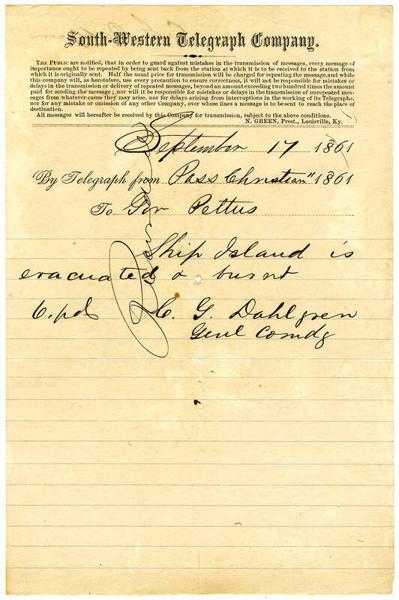 South-Western Telegraph Company.
THE PUBLIC are notified, that in order to guard against mistakes in the transmission of messages, every message of
importance ought to be repeated by being sent back from the station at which it is to be received to the station from
which it is originally sent. Half the usual price for transmission will be charged for repeating the message, and while
this company will, as heretofore, use every precaution to ensure correctness, it will not be responsible for mistakes or
delays in the transmission or delivery of repeated messages, beyond an amount exceeding two hundred times the amount
paid for sending the message; nor will it be responsible for mistakes or delays in the transmission of unrepeated mes-
sages from whatever cause they may arise, nor for delays arising from interruptions in the working of its Telegraphs,
nor for any mistake or omission of any other Company, over whose lines a message is to be sent to reach the place of
destination.
All messages will hereafter be received by this Company for transmission, subject to the above conditions.
N. GREEN, Prest., Louisville, Ky.
September 17 1861
By Telegraph from Pass Christian" 1861
To Gov Pettus
Ship Island is
evacuated & burnt
C. G. Dahlgren
Genl Comdg